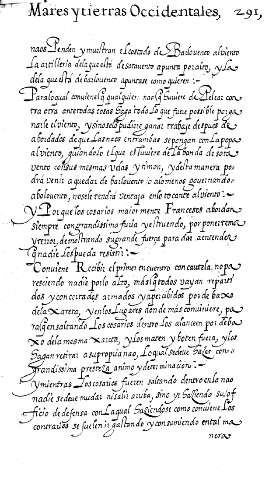 Mares y tierras Occidentales, 291,
naos Penden y muestran el costado de Barlouento al viento
La artilleria dela que esta de sotauento apunta por alto, y La
dela que esta de barlouento apuntase como quieren:-
Para lo qual comunmente qualquier nao que hubiere de Pelear con
tra otra ante todas cosas haga todo lo que fuere posible por ga
narle el viento, y si no se lo pudiere ganar trabaje despues de
abordados de que Las naos entrambas se pongan con La popa
al viento, quiandole el que estuuiere de La banda de sota
vento con sus mesmas velas y timon, y desta manera po
dra venir a quedar de barlouento o alomenos gouernandō
abolouento, no sele tendra ventaja en lo tocante al viento:-
Y Por que los cosarios maior mente Franceses abordan
siempre con grandissima furia y estruendo, por poner temor
y terror, demostrando su grande fuerza para dar a entender
que nadie Les pueda resistir:-
Conuiene Recibir el primer encuentro con cautela, no pa
resciendo nadie por lo alto, mas los soldados vayan reparti
dos y concertados armados y apercibidos por de baxo
dela xareta, y en los Lugares donde mas conuiniere, pa
ra que en saltando Los cosarios dentro los alancen por deba
xo de la mesma xareta, y los maten y boten fuera, y los
hagan retirar a su propria nao, Lo qual se deue hazer con
grandissima presteza animo y determinacion:-
y mientras Los cosarios fueren saltando dentro en la nao
nadie se deue mudar ni salir arriba, sino yr haziendo su of
ficio de defensa con La qual haziendose como conuiene Los
contrarios se suelen ir gastando y consumiendo en tal ma
nera